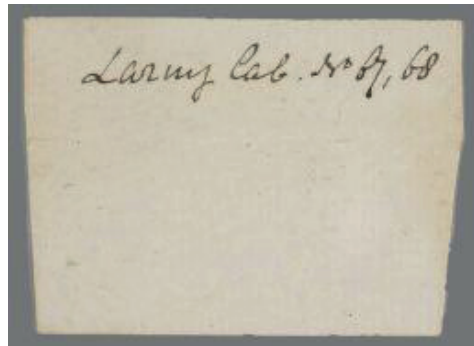 Larmy Cab. No 67, 68